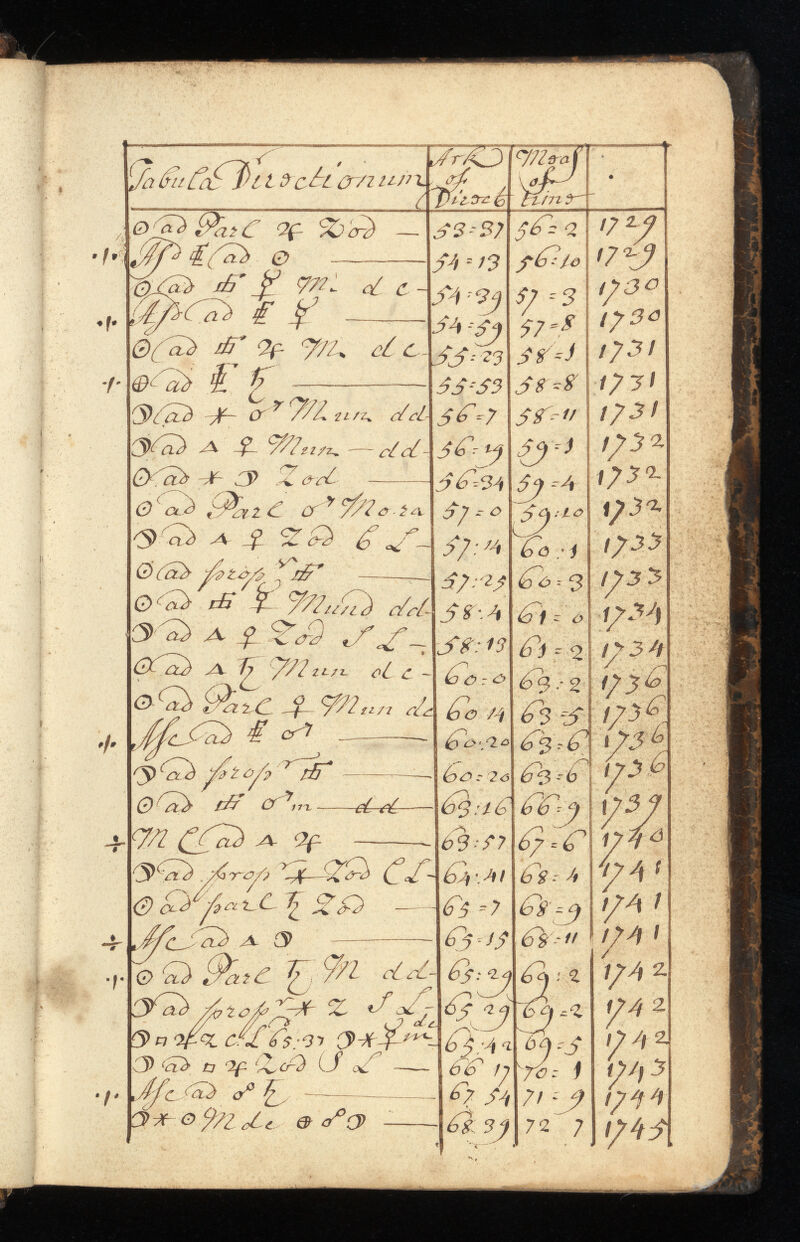 Tabula Directionum Ark of Direct Meas of time .
☉ ad Parl ♃ Zod — 53=37 56=2 1729
·/· Asd ad ☉ — 54=13 56:10 1729
☉ ad ♀ M. d c - 54:39 57=3 1730
·/· Asd ad ♀ — 54=59 57=8 1730
☉ ad ♃ M. d c 55=23 58=1 1731
·/· ⊕ ad ♄ — 55=53 58=8 1731
☽ ad ⚹ ♂ Mun dd 56=7 58=11 1731
☽ ad △ ♀ Mun — dd - 56=19 59=1 1732
☉ ad ⚹ ☽ Zod — 56=34 59=4 1732
☉ ad Parl ♂ Mo.ra 57=0 59:10 1732
☽ ad △ ♀ Zod C L - 57:14 60:1 1733
☉ ad propr — 57:25 60=3 1733
☉ ad ♀ Mund dd - 58:4 61=0 1734
☽ ad △ ♀ Zod S L - 58:13 61=2 1734
☉ ad △ ♄ Mun d c - 60=0 63:2 1736
☉ ad Parl ♀ Mun dc 60 14 63=5 1736
·/· Asc ad ♂ — 60:20 63=6 1736
☽ ad propr — 60=20 63=6 1736
☉ ad ♂ m — dd — 63:16 66=9 1739
÷ M C ad △ ♃ — 63:57 67=6 1740
☽ ad propr ⚹ Zod C L - 64:41 68=4 1741
☉ ad parl ♄ Zod — 65=7 68=9 1741
÷ Asc ad △ ☽ — 65=15 68=11 1741
·/· ☉ ad Parl ♄ M dd - 65:29 69:2 1742
☽ ad propr ⚹ Z S L - 65 29 69=2 1742
☽ □ ♃ Z C L 65:37 ☽ ⚹ ♀ m dc 65:42 69=5 1742
☽ ad □ ♃ Zod S L — 66 17 70=1 1743
·/· Asc ad ☍ ♄ — 67 54 71=9 1744
☽ ⚹ ☉ M d c ⊕ ☍ ☽ — 68 39 72 7 1745